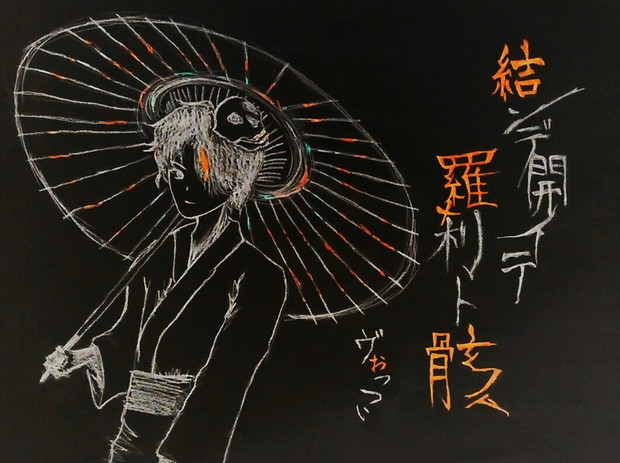 結ンデ開イテ
羅刹ト骸
ヴぉっつぃ